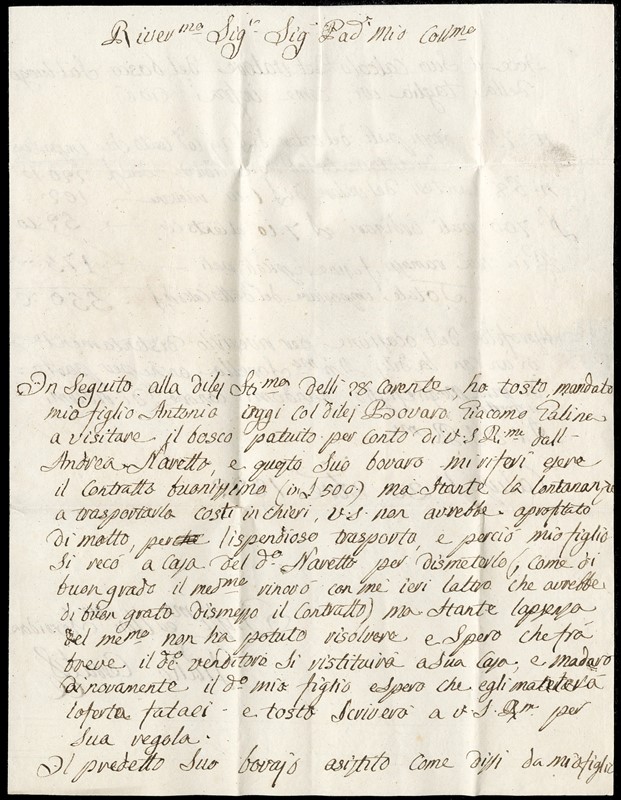 River.mo Sig.r Sig.r Pad.e Mio Col.mo
In Seguito alla dilei Stt.ma delli 28 Corente ha tosto mandato
mio figlio Antonio oggi col dilei Bovaro Giacomo
a visitare il bosco patuito per conto di V.S.R.me dall-
Andrea Naretto, e questo Suo bovaro mi riferi esere
il Contratto buonissimo (in £ 500) ma Stante la lontananza
a trasportarlo Costì in chieri, V.S. non avrebbe aprofitato
di molto, per lispendioso trasporto, e perciò mio figlio
Si recò a Casa del d.o Naretto per dismeterlo (, come di
buon grado il med.mo rinovò con me ieri laltro che avrebbe
di buon grato dismesso il Contratto) ma Stante lapsenza
del me.mo non ha potuto risolvere e Spero che frà
breve il d.o venditore Si ristituirà a Sua Casa, e madarò
novamente il d.o mio figlio e spero che egli
loferta fatali - e tosto Scriverò a V.S.R.m per
Sua regola.
Il predetto Suo bovajo asistito come dissi da mio figlio